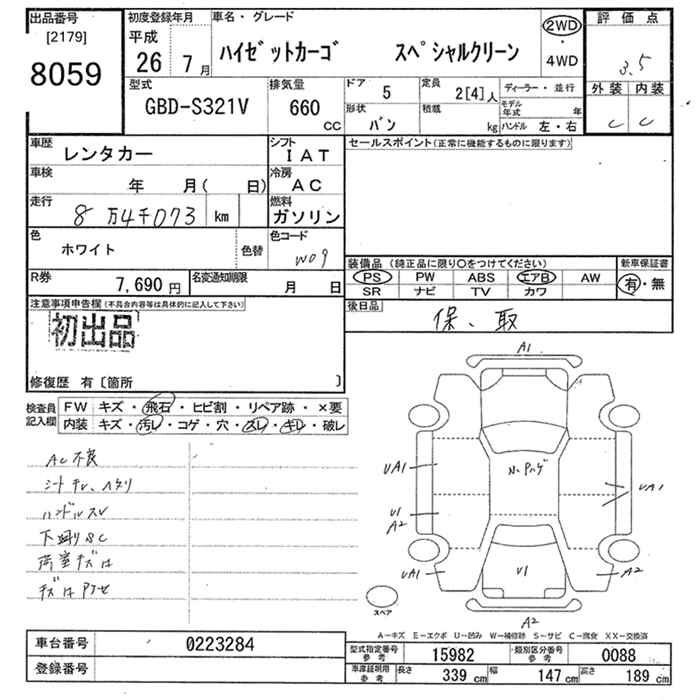 出品番号
[2179]
8059
初度登録年月
平成
26 7月
車名・グレード
ハイゼットカーゴ スペシャルクリーン
2WD
・
4WD
評価点
3.5
外装 内装
C C
型式
GBD-S321V
排気量
660
CC
ドア 5
定員 2[4]人
ディーラー・並行
形状
バン
積載 kg
モデル年式 年
ハンドル 左・右
車歴 レンタカー
シフト
IAT
車検 年 月( 日)
冷房
AC
走行 8万4千073 km
燃料
ガソリン
色 ホワイト
色替
色コード
W09
R券 7,690円
名変通知期限 月 日
セールスポイント(正常に機能するものに限ります)
装備品(純正品に限り○をつけてください)
PS PW ABS エアB AW
SR ナビ TV カワ
新車保証書
有・無
後日品
保、取
注意事項申告欄(不具合内容等は具体的に記入して下さい)
初出品
修復歴 有〔箇所 〕
検査員記入欄
FW キズ・飛石・ヒビ割・リペア跡・×要
内装 キズ・汚レ・コゲ・穴・スレ・キレ・破レ
AC不良
ハンドルスレ
A1
UA1
UA1
U1
A2
UA1
U1
A2
A2
スペア
A-キズ E-エクボ U-凹み W-補修跡 S-サビ C-腐食 XX-交換済
車台番号 0223284
登録番号
型式指定番号
参考
15982
類別区分番号
参考
0088
車庫証明用
参考
長さ 339 cm
幅 147 cm
高さ 189 cm